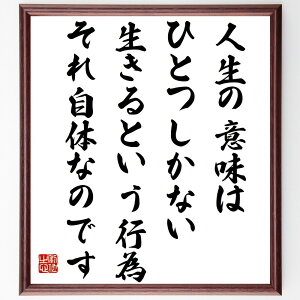 人生の意味は
ひとつしかない
生きるという行為
それ自体なのです